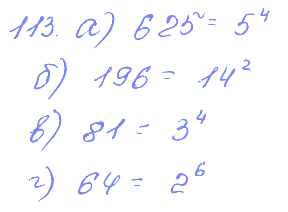 113. а) 625 = 5⁴
б) 196 = 14²
в) 81 = 3⁴
г) 64 = 2⁶